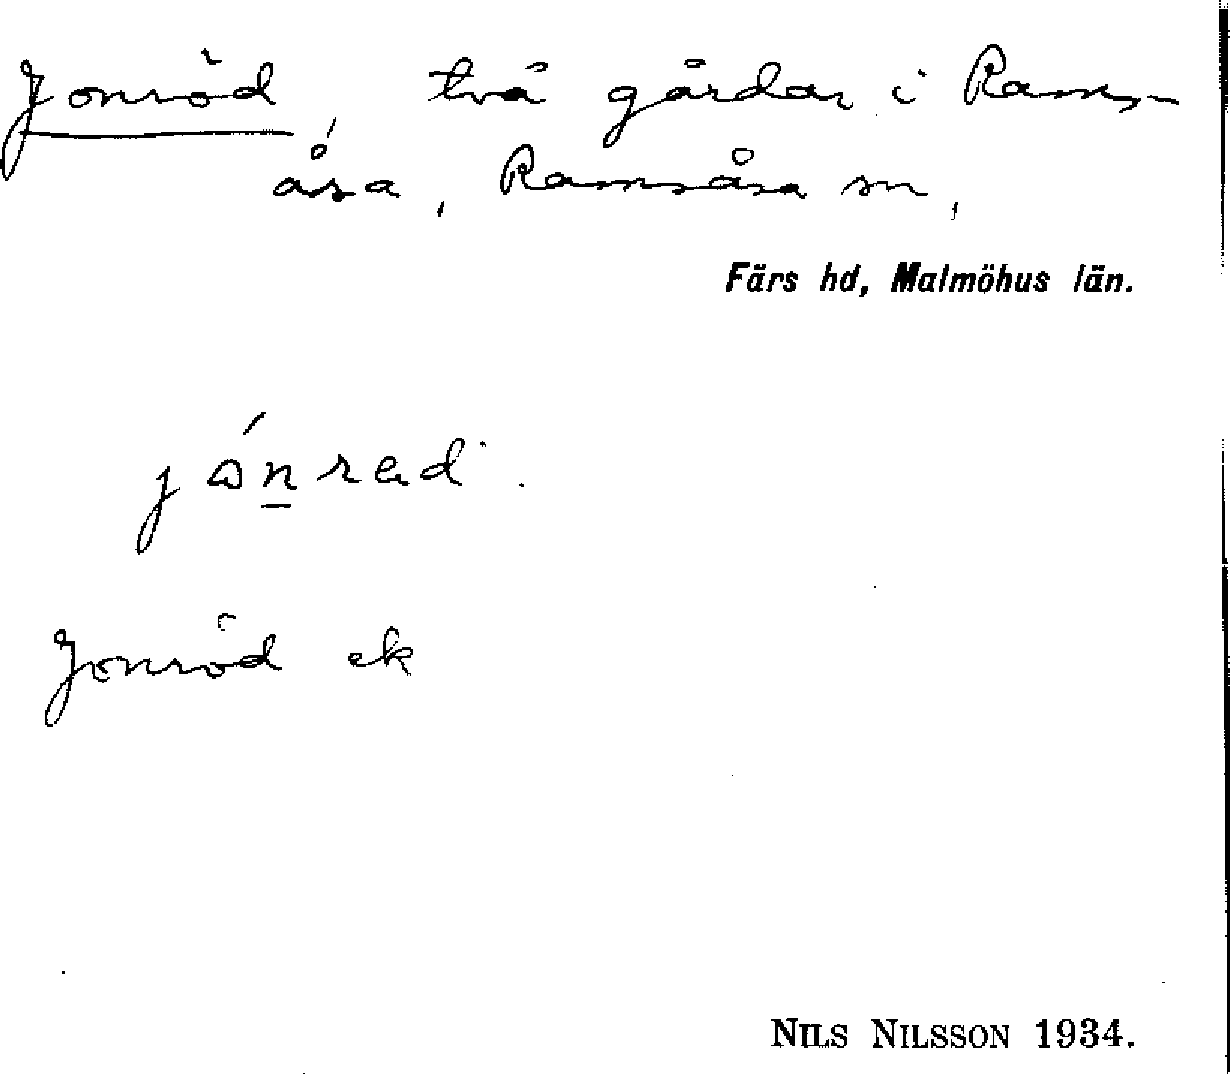 Jonröd, två gårdar i Rams-
åsa, Ramsåsa sn,
Färs hd, Malmöhus län.
Jonröd ek
NILS NILSSON 1934.